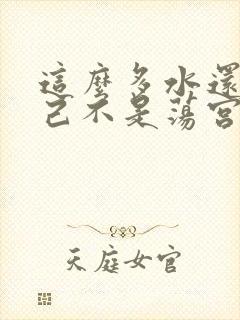 這麼多水還
己不是蕩宮
天庭女官